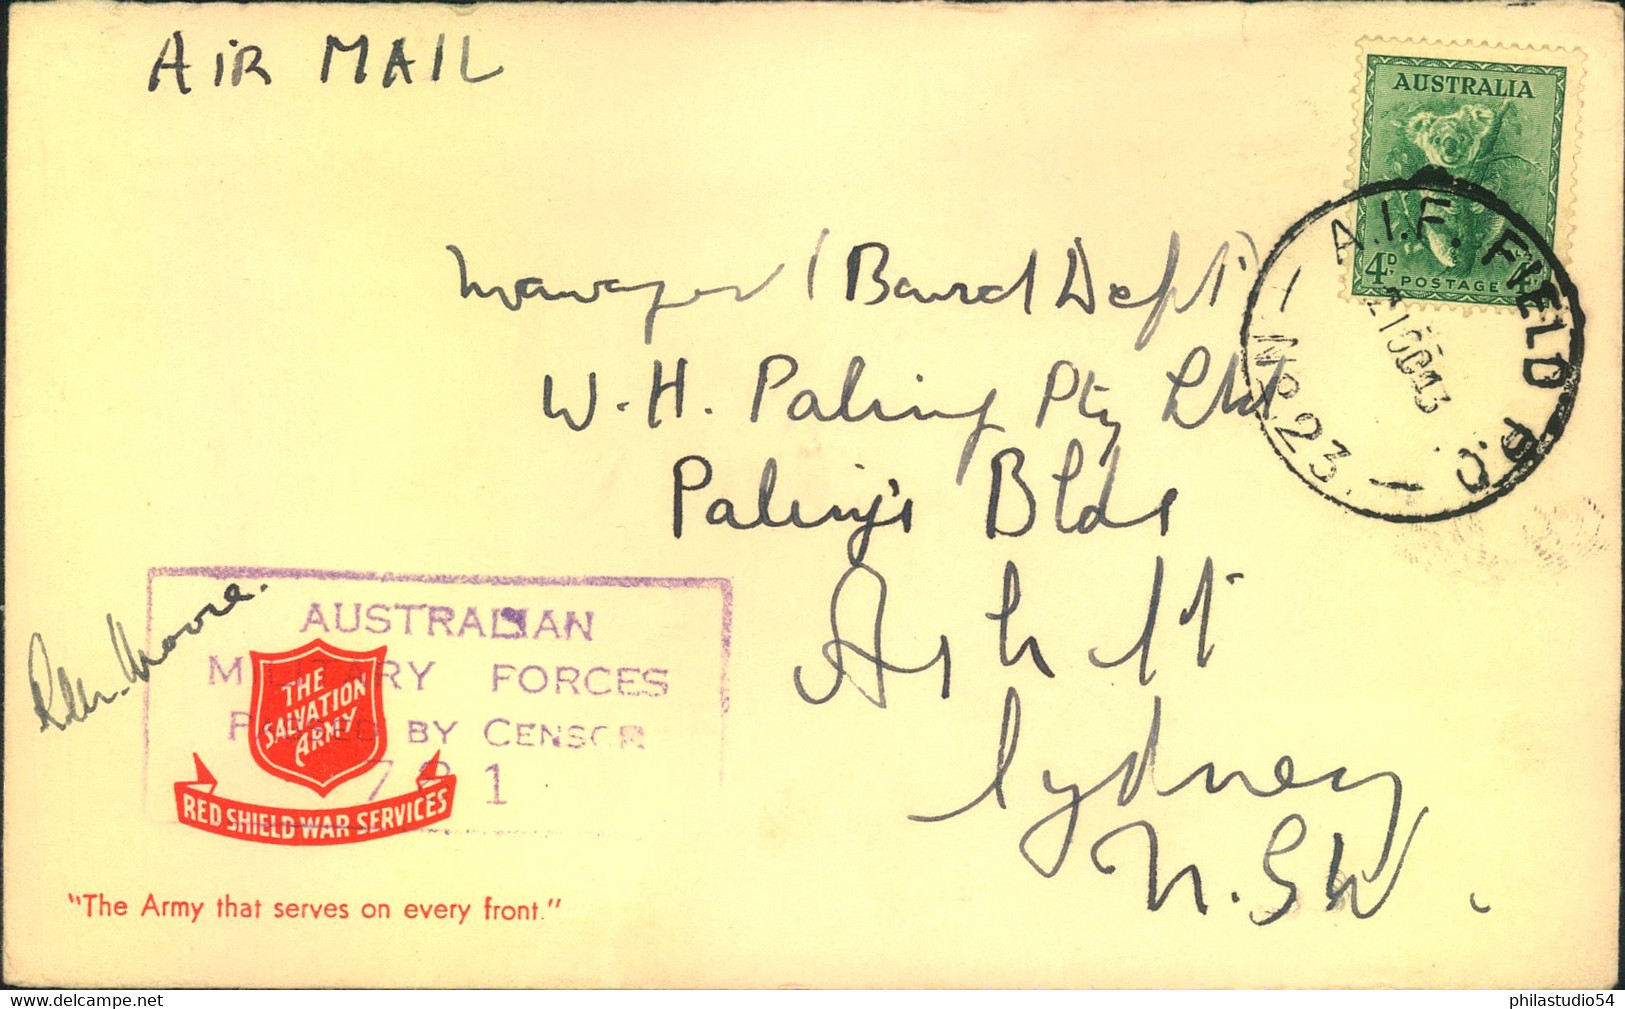 AIR MAIL
AUSTRALIA
4D POSTAGE 4D
A.I.F. FIELD P.O.
No 23
21 OC 43
Manager (Band Dept)
W.H. Paling Pty Ltd
Paling's Blds
Ash St
Sydney
N.S.W.
Moore.
AUSTRALIAN
MILITARY FORCES
PASSED BY CENSOR
THE
SALVATION
ARMY
RED SHIELD WAR SERVICES
"The Army that serves on every front."
delcampe.net
philastudio54